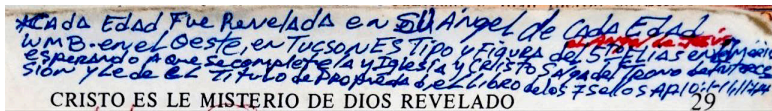 *CADA EDAD FUE REVELADA en SU ÁNGEL de CADA EDAD
WMB. en el Oeste, en TUCSON ES TIPO y FIGURA del 5º ELIAS en
esperando a que se complete la Iglesia y CRISTO SALGA del Trono de
SION y Le de el TITULO de PROPIEDAD ó, el LIBRO de los 7 Sellos AP.10:1-11
CRISTO ES LE MISTERIO DE DIOS REVELADO 29